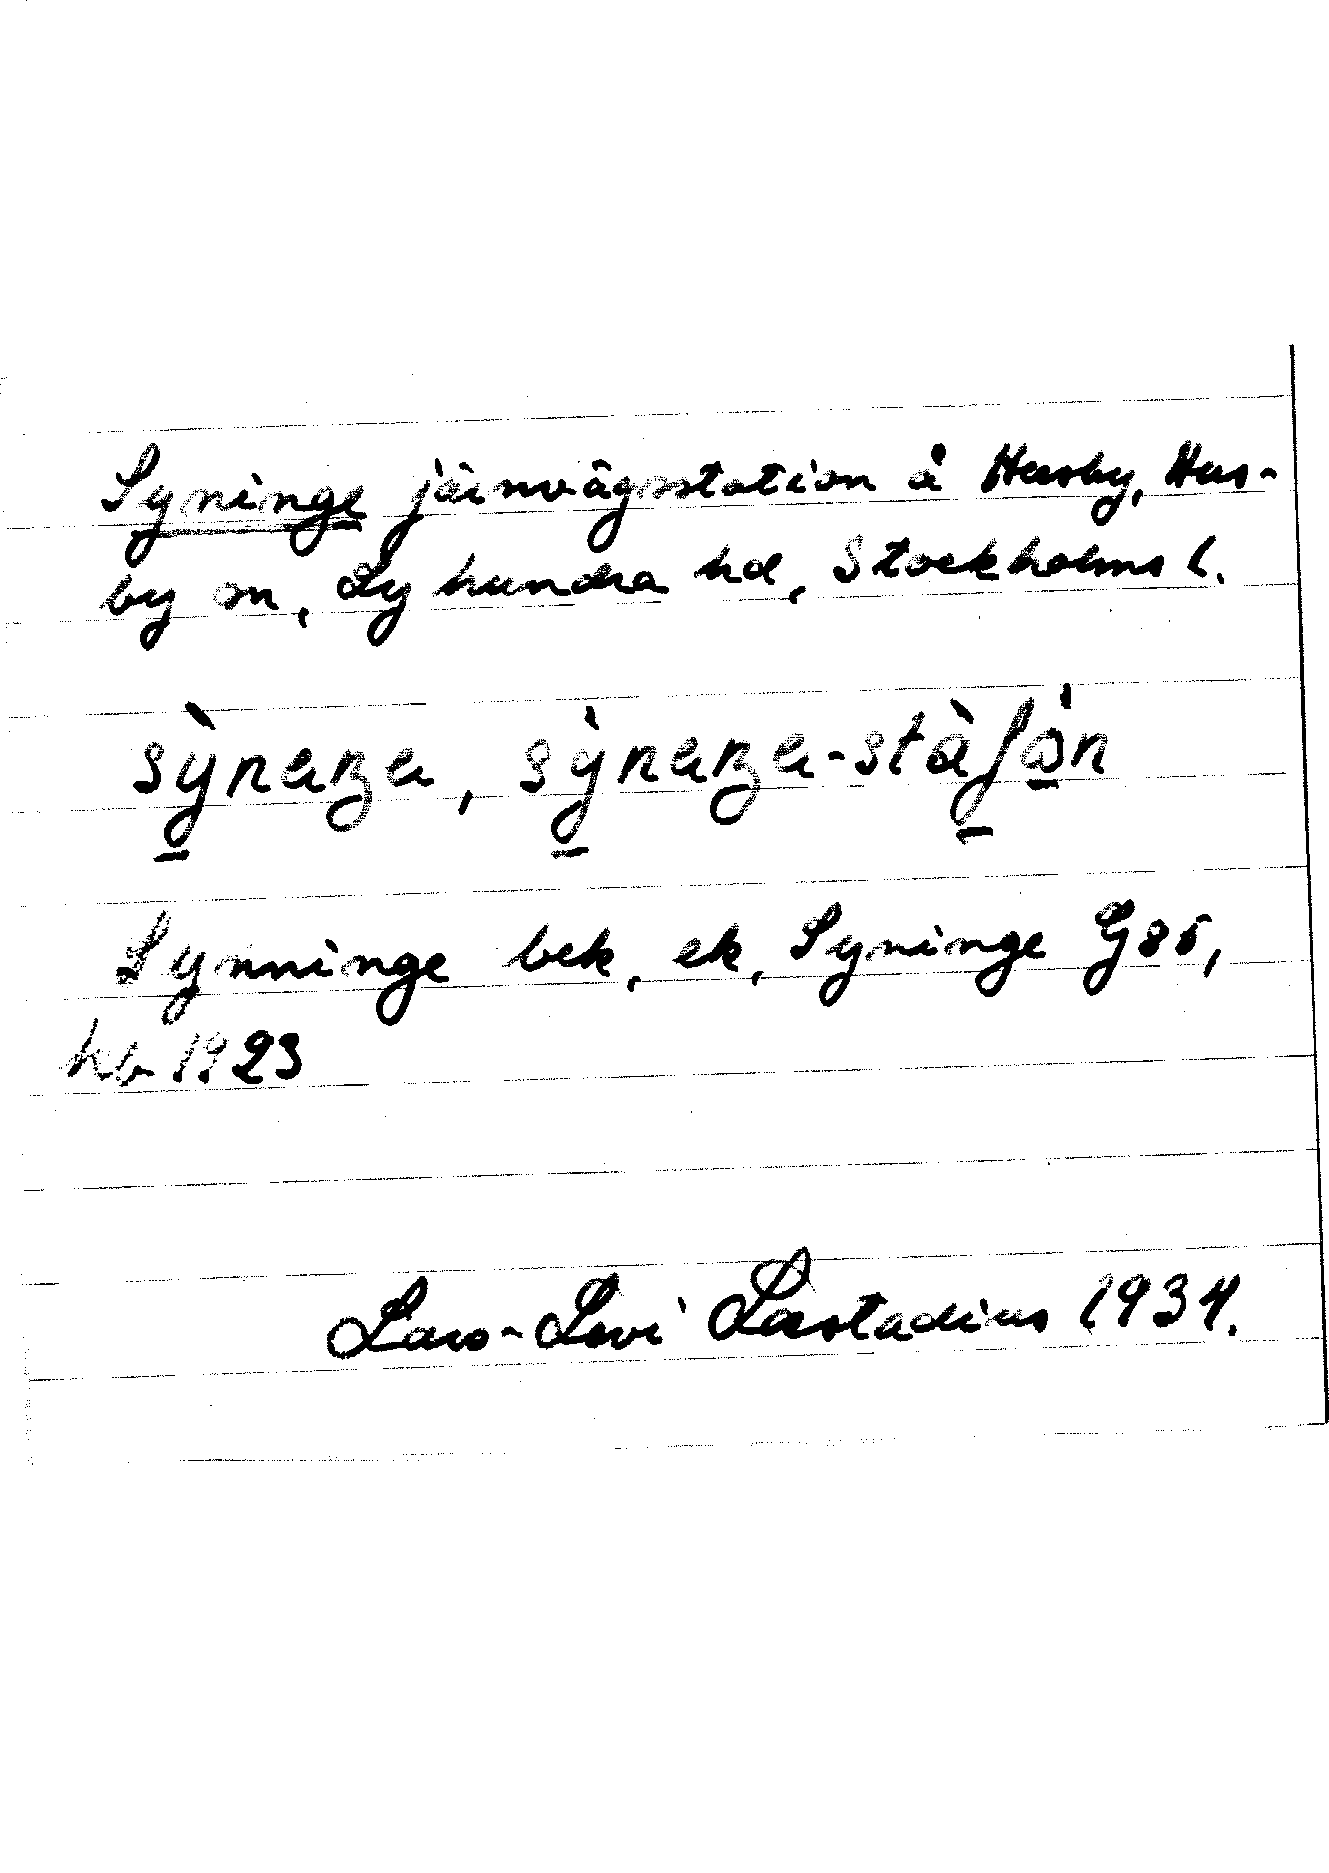 Syninge järnvägsstation å Husby, Hus-
by sn, Lyhundra hd, Stockholms l.
sỳnaŋa, sỳnaŋa-stàʃón
Synninge bek, ek, Syninge G86,
kb 1923
Lars-Levi Læstadius 1934.